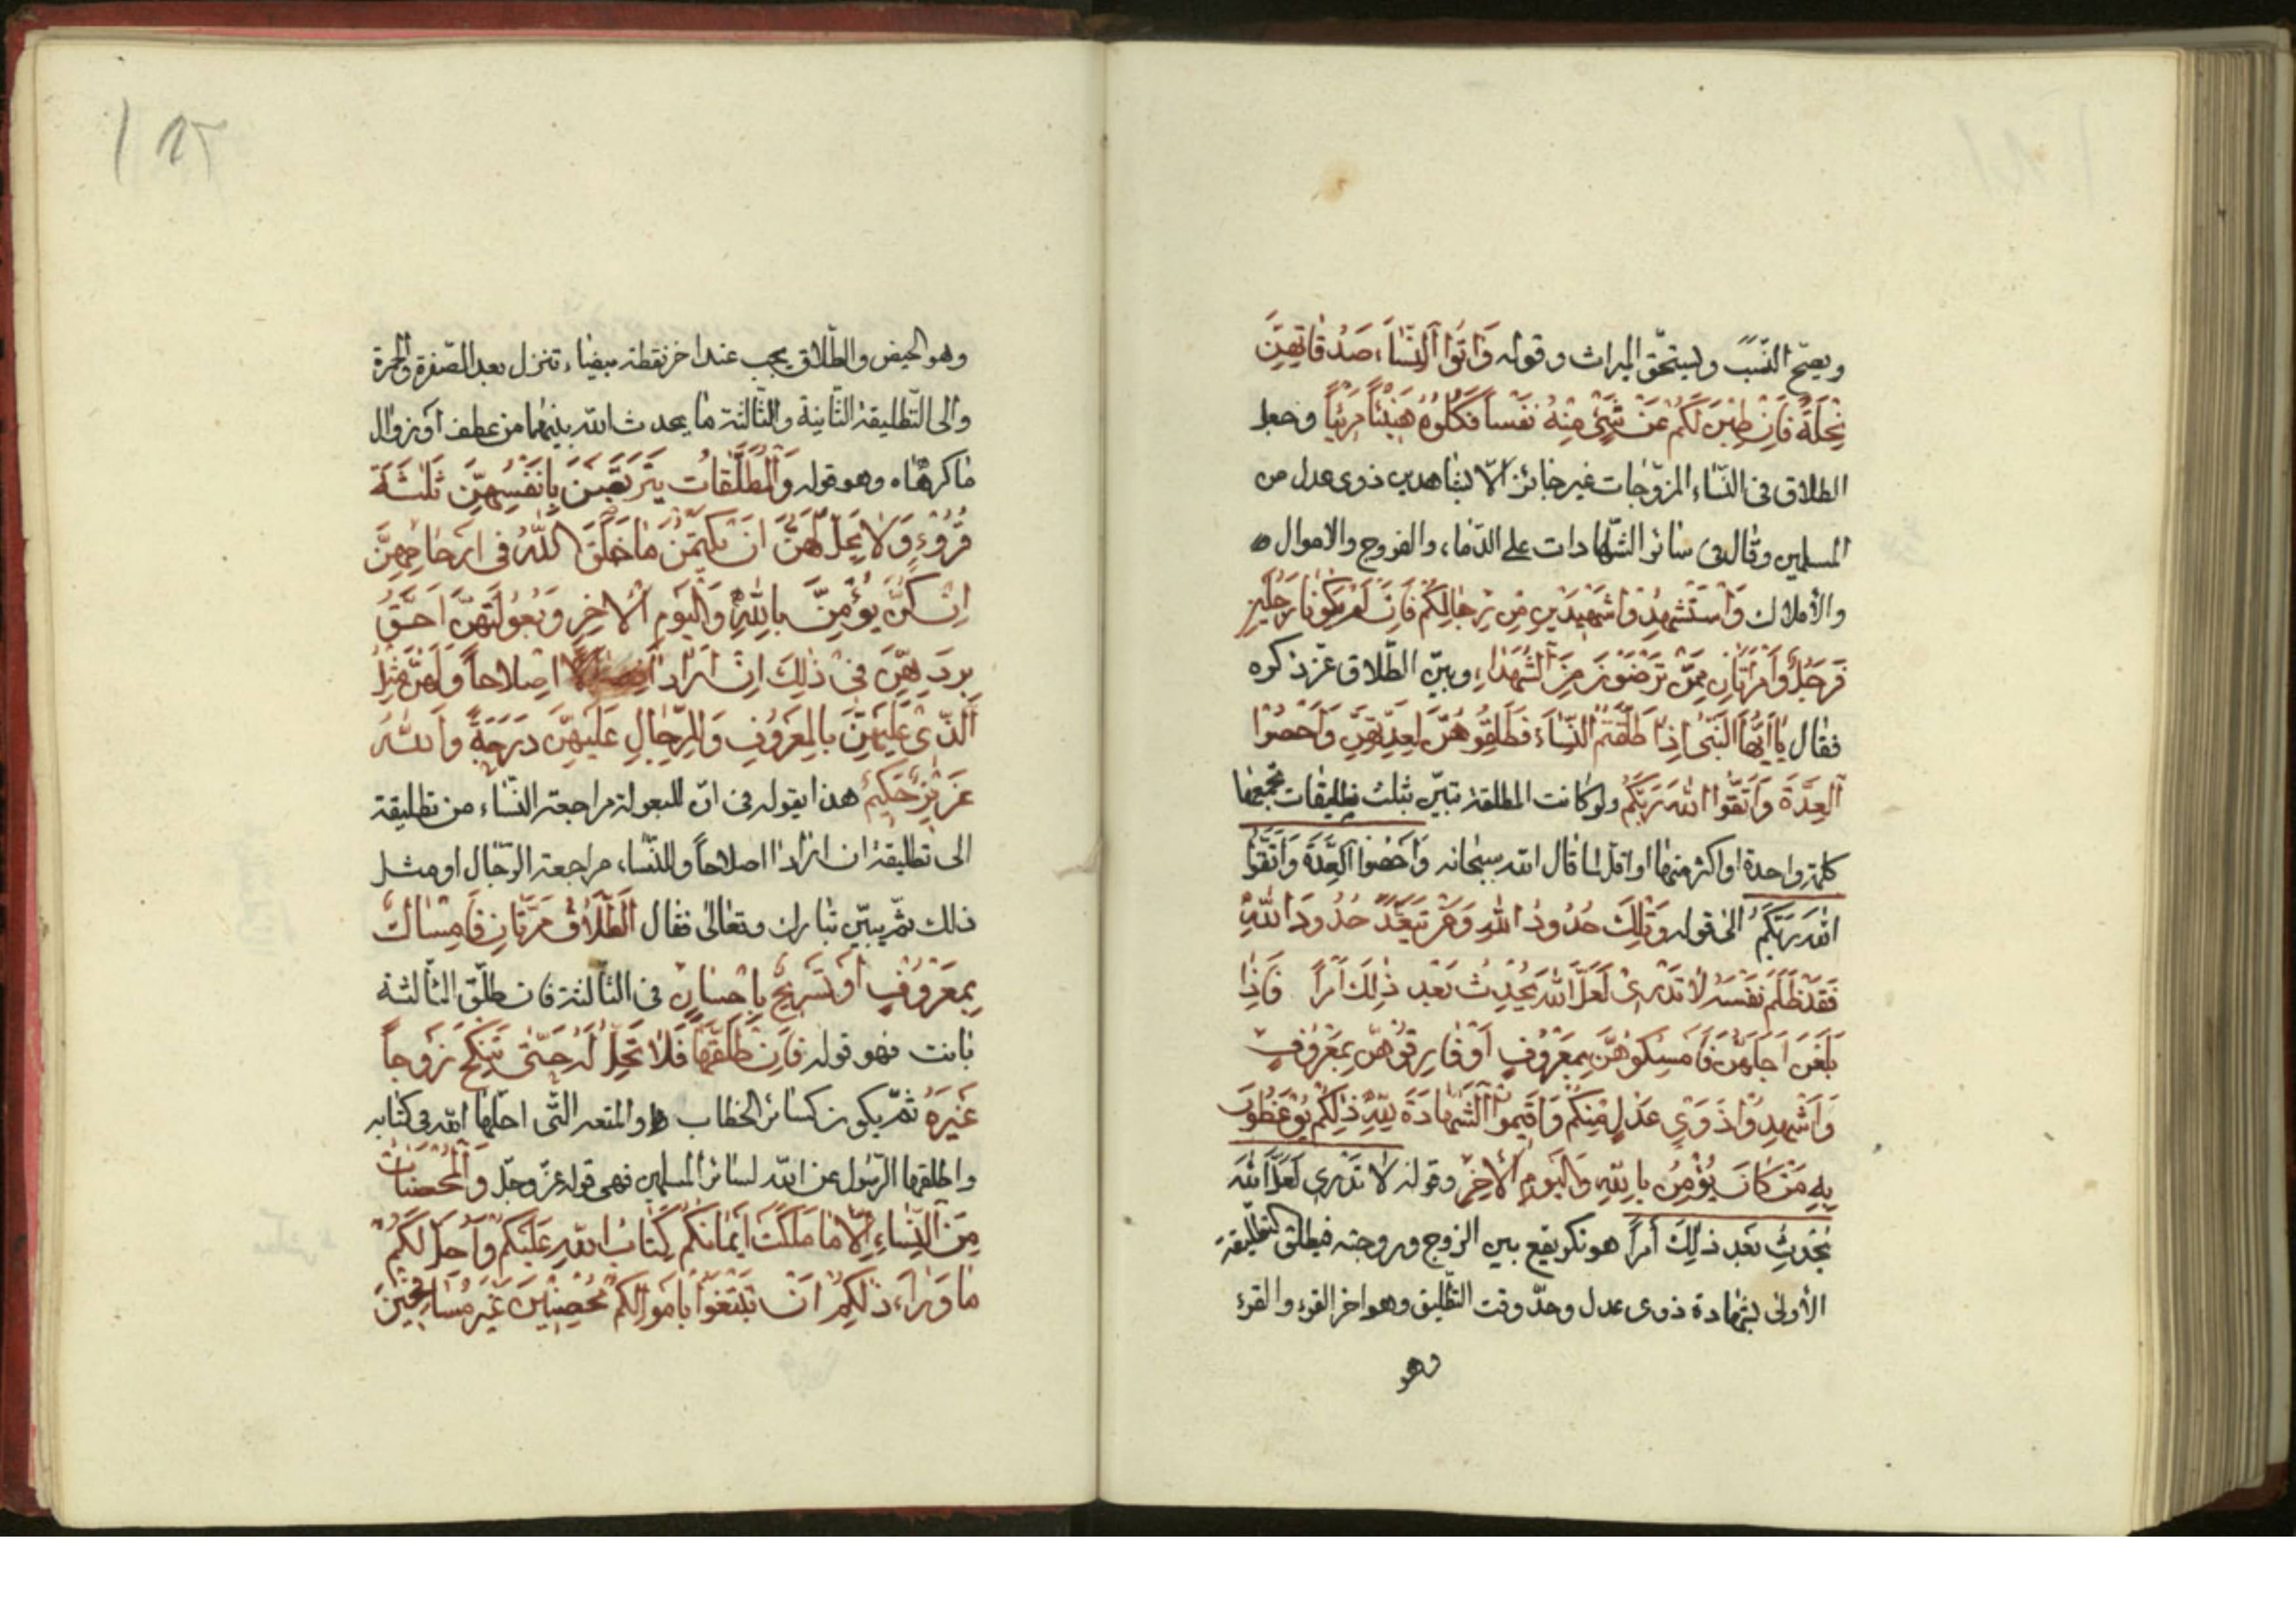 ويصحّ النّسب ويستحقّ الميراث وقوله وَاتَوُا النِّسَاءَ صَدُقَاتِهِنَّ
نِحْلَةً فَاِنْ طِبْنَ لَكُمْ عَنْ شَيْءٍ مِنْهُ نَفْساً فَكُلُوهُ هَنِيئاً مَرِيّاً وجعل
الطلاق فى النّساء المزوّجات غير جائز الّا بشاهدين ذوى عدل من
المسلمين وقال فى سائر الشّهادات على الدّماء والفروج والاموال
والأملاك وَاسْتَشْهِدُوا شَهِيدَيْنِ مِنْ رِجَالِكُمْ فَاِنْ لَمْ يَكُونَا رَجُلَيْنِ
فَرَجُلٌ وَامْرَأَتَانِ مِمَّنْ تَرْضَوْنَ مِنَ الشُّهَدَاءِ وبيّن الطّلاق عزّ ذكره
فقال يَا اَيُّهَا النَّبِىُّ اِذَا طَلَّقْتُمُ النِّسَاءَ فَطَلِّقُوهُنَّ لِعِدَّتِهِنَّ وَاَحْصُوا
الْعِدَّةَ وَاتَّقُوا اللهَ رَبَّكُمْ ولو كانت المطلقة تبيّن بثلث تطليقات تجمعها
كلمة واحدة او اكثر منها او اقل لما قال الله سبحانه وَاَحْصُوا الْعِدَّةَ وَاتَّقُوا
اللهَ رَبَّكُمْ الى قوله وَتِلْكَ حُدُودُ اللهِ وَمَنْ يَتَعَدَّ حُدُودَ اللهِ
فَقَدْ ظَلَمَ نَفْسَهُ لَا تَدْرِى لَعَلَّ اللهَ يُحْدِثُ بَعْدَ ذٰلِكَ اَمْراً فَاِذَا
بَلَغْنَ اَجَلَهُنَّ فَاَمْسِكُوهُنَّ بِمَعْرُوفٍ اَوْ فَارِقُوهُنَّ بِمَعْرُوفٍ
وَاَشْهِدُوا ذَوَىْ عَدْلٍ مِنْكُمْ وَاَقِيمُوا الشَّهَادَةَ لِلّٰهِ ذٰلِكُمْ يُوعَظُ
بِهِ مَنْ كَانَ يُؤْمِنُ بِاللهِ وَالْيَوْمِ الْاٰخِرِ وقوله لَا تَدْرِى لَعَلَّ اللهَ
يُحْدِثُ بَعْدَ ذٰلِكَ اَمْراً هو نكر يقع بين الزوج وزوجته فيطلق التطليقة
الأولى بشهادة ذوى عدل وحدّ وقت التّطليق وهو اخر القرء والقرء
وهو
وهو الحيض والطّلاق يجب عند اخر نقطة بيضاء تنزل بعد الصّفرة والحمرة
والى التّطليقة الثّانية والثّالثة ما يحدث الله بينهما من عطف او زوال
ما كرهاه وهو قوله وَالْمُطَلَّقَاتُ يَتَرَبَّصْنَ بِاَنْفُسِهِنَّ ثَلٰثَةَ
قُرُوءٍ وَلَا يَحِلُّ لَهُنَّ اَنْ يَكْتُمْنَ مَا خَلَقَ اللهُ فِى اَرْحَامِهِنَّ
اِنْ كُنَّ يُؤْمِنَّ بِاللهِ وَالْيَوْمِ الْاٰخِرِ وَبُعُولَتُهُنَّ اَحَقُّ
بِرَدِّهِنَّ فِى ذٰلِكَ اِنْ اَرَادُوا اِصْلَاحاً وَلَهُنَّ مِثْلُ
الَّذِى عَلَيْهِنَّ بِالْمَعْرُوفِ وَلِلرِّجَالِ عَلَيْهِنَّ دَرَجَةٌ وَاللهُ
عَزِيزٌ حَكِيمٌ هذا يقوله فى انّ للبعولة مراجعة النّساء من تطليقة
الى تطليقة ان ارادوا اصلاحاً وللنّساء مراجعة الرّجال او مثل
ذلك ثمّ يبيّن تبارك وتعالى فقال الطَّلَاقُ مَرَّتَانِ فَاِمْسَاكٌ
بِمَعْرُوفٍ اَوْ تَسْرِيحٌ بِاِحْسَانٍ فى الثّالثة فان طلّق الثالثة
بانت فهو قوله فَاِنْ طَلَّقَهَا فَلَا تَحِلُّ لَهُ حَتّٰى تَنْكِحَ زَوْجاً
غَيْرَهُ ثمّ يكون كسائر الخطاب والمتعه التّى احلّها الله فى كتابه
واطلقها الرّسول عن الله لسائر المسلمين فهى قوله عزّ وجلّ وَالْمُحْصَنَاتُ
مِنَ النِّسَاءِ اِلَّا مَا مَلَكَتْ اَيْمَانُكُمْ كِتَابَ اللهِ عَلَيْكُمْ وَاُحِلَّ لَكُمْ
مَا وَرَاءَ ذٰلِكُمْ اَنْ تَبْتَغُوا بِاَمْوَالِكُمْ مُحْصِنِينَ غَيْرَ مُسَافِحِينَ